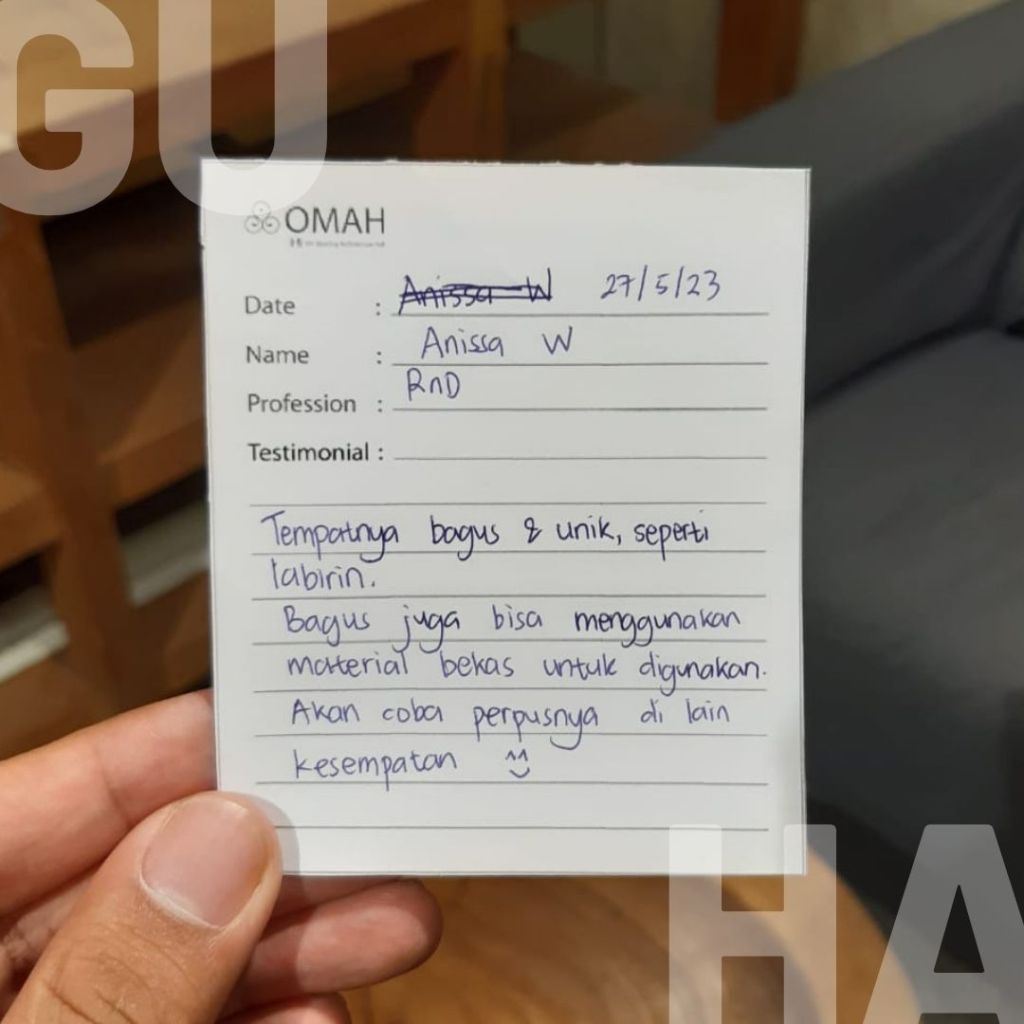 GU
OMAH
Date : Anissa W 27/5/23
Name : Anissa W
Profession : RnD
Testimonial :
Tempatnya bagus & unik, seperti
labirin.
Bagus juga bisa menggunakan
material bekas untuk digunakan.
Akan coba perpusnya di lain
kesempatan
HA